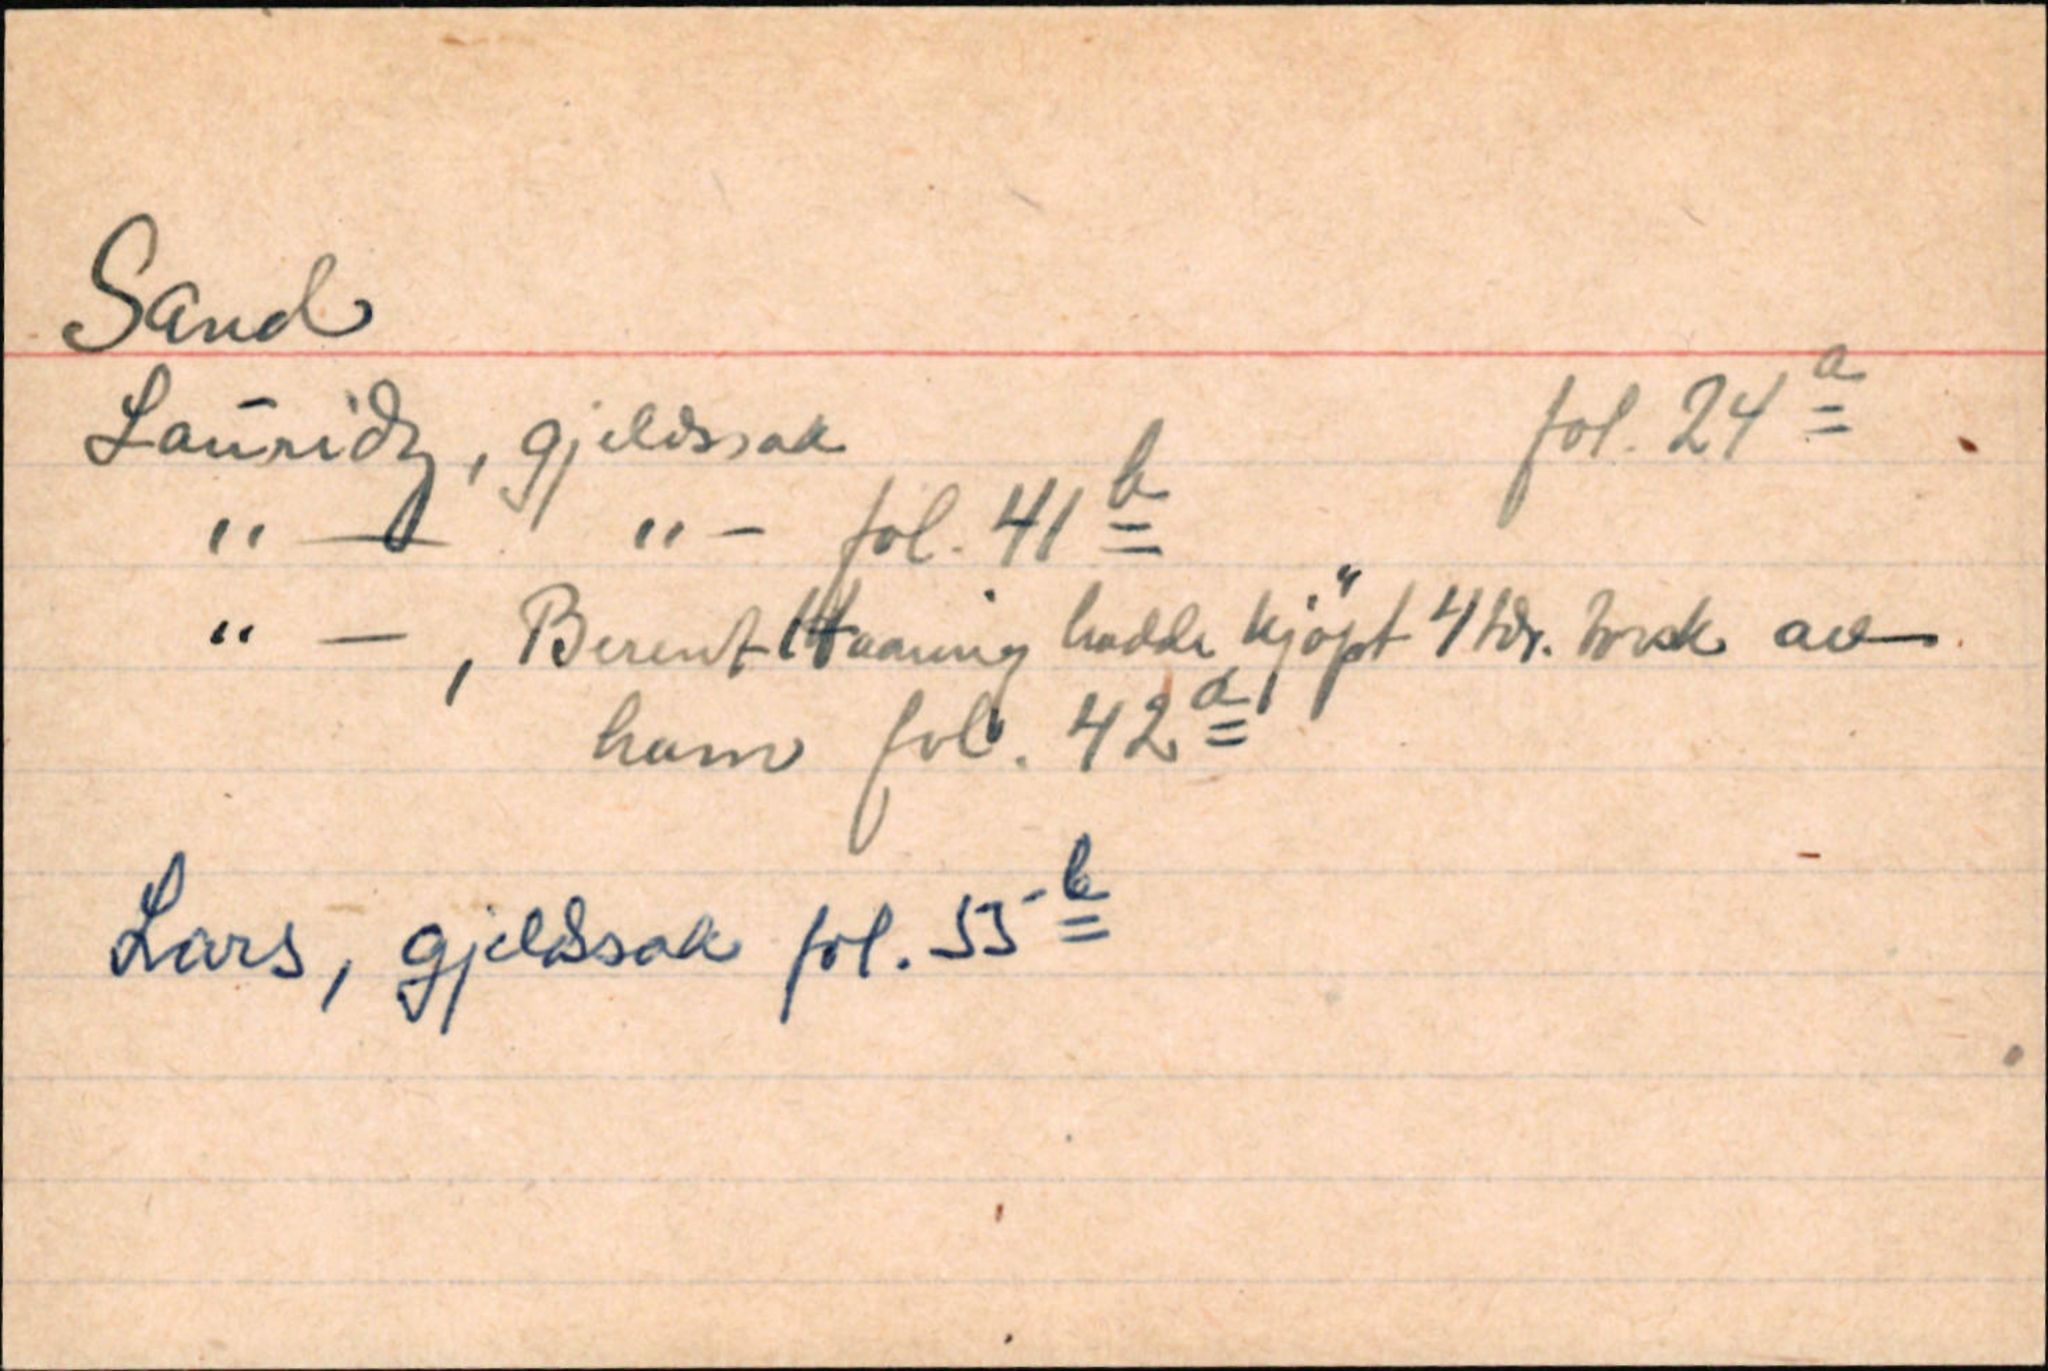 Sand
Lauridz, gjeldssak fol. 24a
" — " — fol. 41b
" —, Berent Haaning hadde kjöpt 4 tdr. torsk av
ham fol. 42a
Lars, gjeldssak fol. 55b